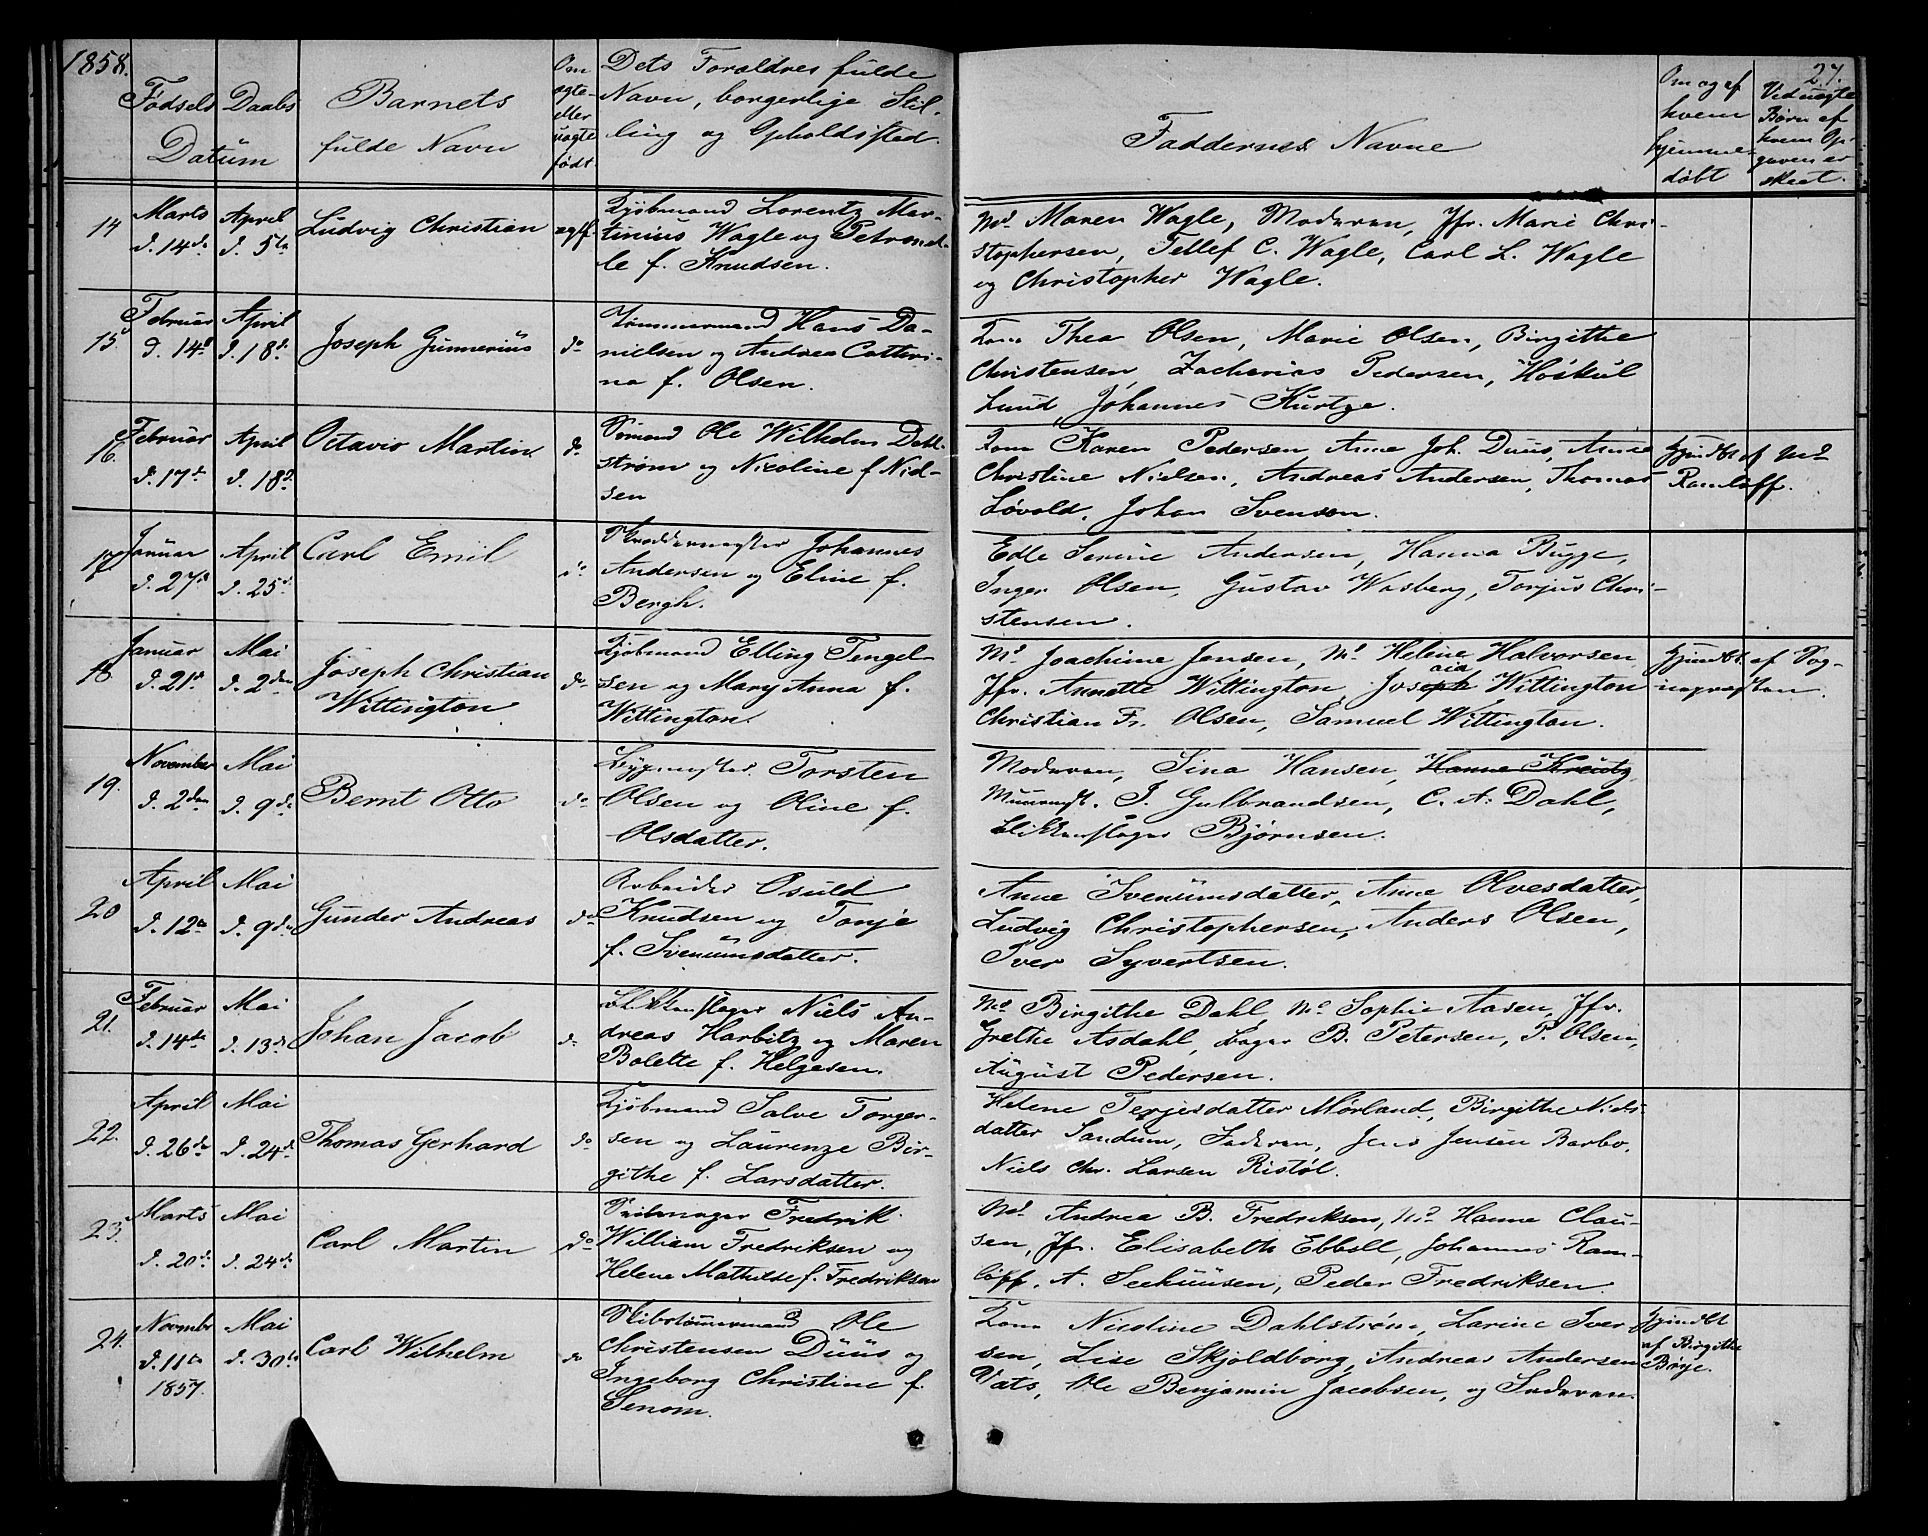 1858.
27.
Fødsels Datum
Daabs
Barnets fulde Navn
Om ægte eller uægte født
Dets Forældres fulde
Navn, borgerlige Stil-
ling og Opholdssted.
Faddernes Navne
Om og af hvem hjemme-døbt
Ved uægte Børn af hvem Op-gaven er skeet.
14 Marts d. 14de April d. 5te Ludvig Christian ægtf.
Kjøbmand Lorentz Mar-
tinius Wagle og Petronel-
le f. Knudsen.
Md. Maren Wagle, Moderen, Jfr. Marie Chri-
stophersen, Tellef C. Wagle, Carl L. Wagle
og Christopher Wagle.
15. Februar d. 14d April d. 18d Joseph Gunnerius do
Tømmermand Hans Da-
nielsen og Andrea Catteri-
na f. Olsen.
Kone Thea Olsen, Marie Olsen, Birgithe
Christensen Zacharias Pedersen, Høskul
Lund, Johannes Kurtze.
16. Februar d. 17d April d. 18d. Octavio Martin do
Sømand Ole Wilhelm Dahl-
strøm og Nicoline f. Niel-
sen
Kone Karen Pedersen, Anne Joh. Duus, Anne
Christine Nielsen, Andreas Andersen, Thomas
Løvold, Johan Svensen.
Hjmdbt af Md
Ramløff.
17. Januar d. 27d April d. 25d. Carl Emil do
Skræddermester Johannes
Andersen og Eline f.
Bergh.
Edle Serine Andersen, Hanna Bugge,
Inger Olsen, Gustav Wasberg, Torjus Chri-
stensen.
18 Januar d. 21d Mai d. 2den Joseph Christian
Wittington do
Kjøbmand Elling Tengel-
sen og Mary Anna f.
Wittington.
Md. Joachime Jensen, Md. Helene Halvorsen
Jfr. Annette Wittington, Joseph Wittington
Christian Fr. Olsen, Samuel Wittington.
Hjmdbt. af Sog-
nepræsten.
19. November d. 2den Mai d. 9de Bernt Otto do
Bygmester Torsten
Olsen og Oline f.
Olsdatter.
Moderen, Sina Hansen, Hanne Kreutz,
Muurmst. J. Gulbrandsen, C. A. Dahl,
Blikkenslager Bjørnsen.
20 April d. 12te Mai d. 9de Gunder Andreas do
Arbeider Osuld
Knudsen og Tonje
f. Svenumsdatter.
Anne Svenumsdatter, Anne Olvesdatter,
Ludvig Christophersen, Anders Olsen,
Iver Syvertsen.
21. Februar d. 14de Mai d. 13de Johan Jacob do
Blikkenslager Niels An-
dreas Harbitz og Maren
Bolette f. Helgesen.
Md. Birgithe Dahl, Md. Sophie Aasen, Jfr.
Grethe Asdahl, Bager B. Petersen, P. Olsen,
August Pedersen.
22. April d. 26de Mai d. 24de Thomas Gerhard do
Kjøbmand Salve Torger-
sen og Laurenze Bir-
githe f. Larsdatter.
Helene Terjesdatter Mørland, Birgithe Niels-
datter Sandum, Faderen, Jens Jensen Barbo.
Niels Chr. Larsen Ristøl.
23. Marts d. 20de Mai d. 24de Carl Martin do
Fredrik
William Fredriksen og
Helene Mathilde f. Fredriksen
Md. Andrea B. Fredriksen, Md. Hanne Clau-
sen, Jfr. Elisabeth Ebbell, Johannes Ram-
løff, A. Seehuusen, Peder Fredriksen.
24. Novembr d. 11te 1857. Mai d. 30te Carl Wilhelm do
Skibstømmermand Ole
Christensen Duus og
Ingeborg Christine f.
Senom.
Kone Nicoline Dahlstrøm, Larine Iver-
sen, Lise Skjoldborg, Andreas Andersen
Vats, Ole Benjamin Jacobsen, og Faderen.
Hjmdbt
af Birgithe
Børje.